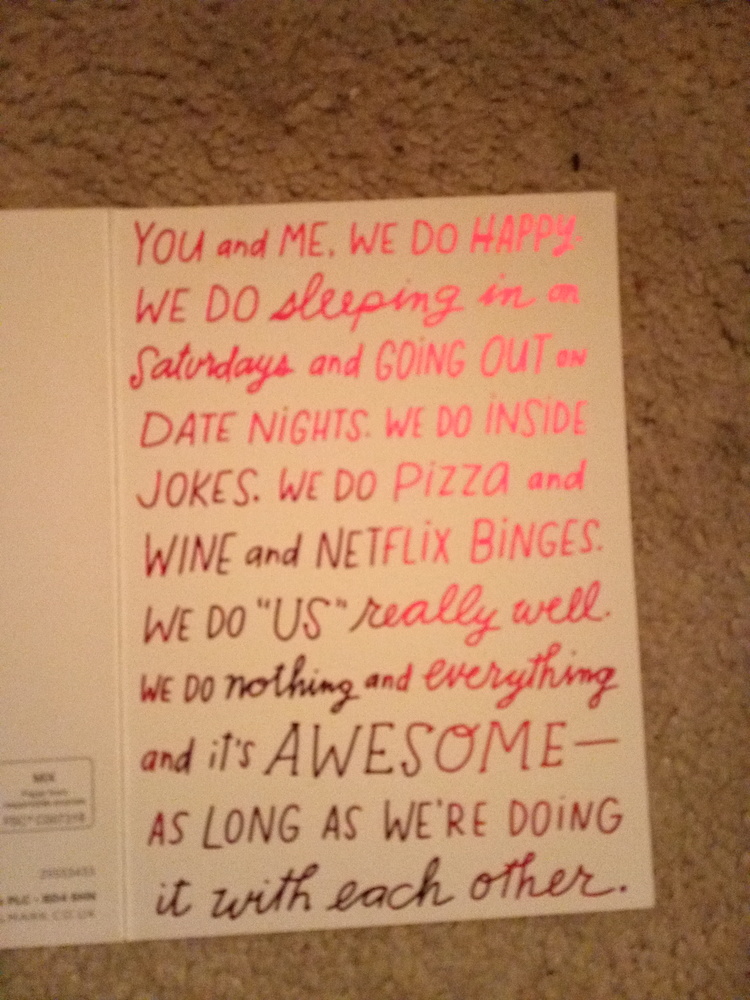 YOU and ME, WE DO HAPPY.
WE DO sleeping in on
Saturdays and GOING OUT ON
DATE NIGHTS. WE DO INSIDE
JOKES. WE DO PIZZA and
WINE and NETFLIX BINGES.
WE DO "US" really well.
WE DO nothing and everything
and it's AWESOME—
AS LONG AS WE'RE DOING
it with each other.
MIX
PLC - BD4 6HN
LMARK.CO.UK